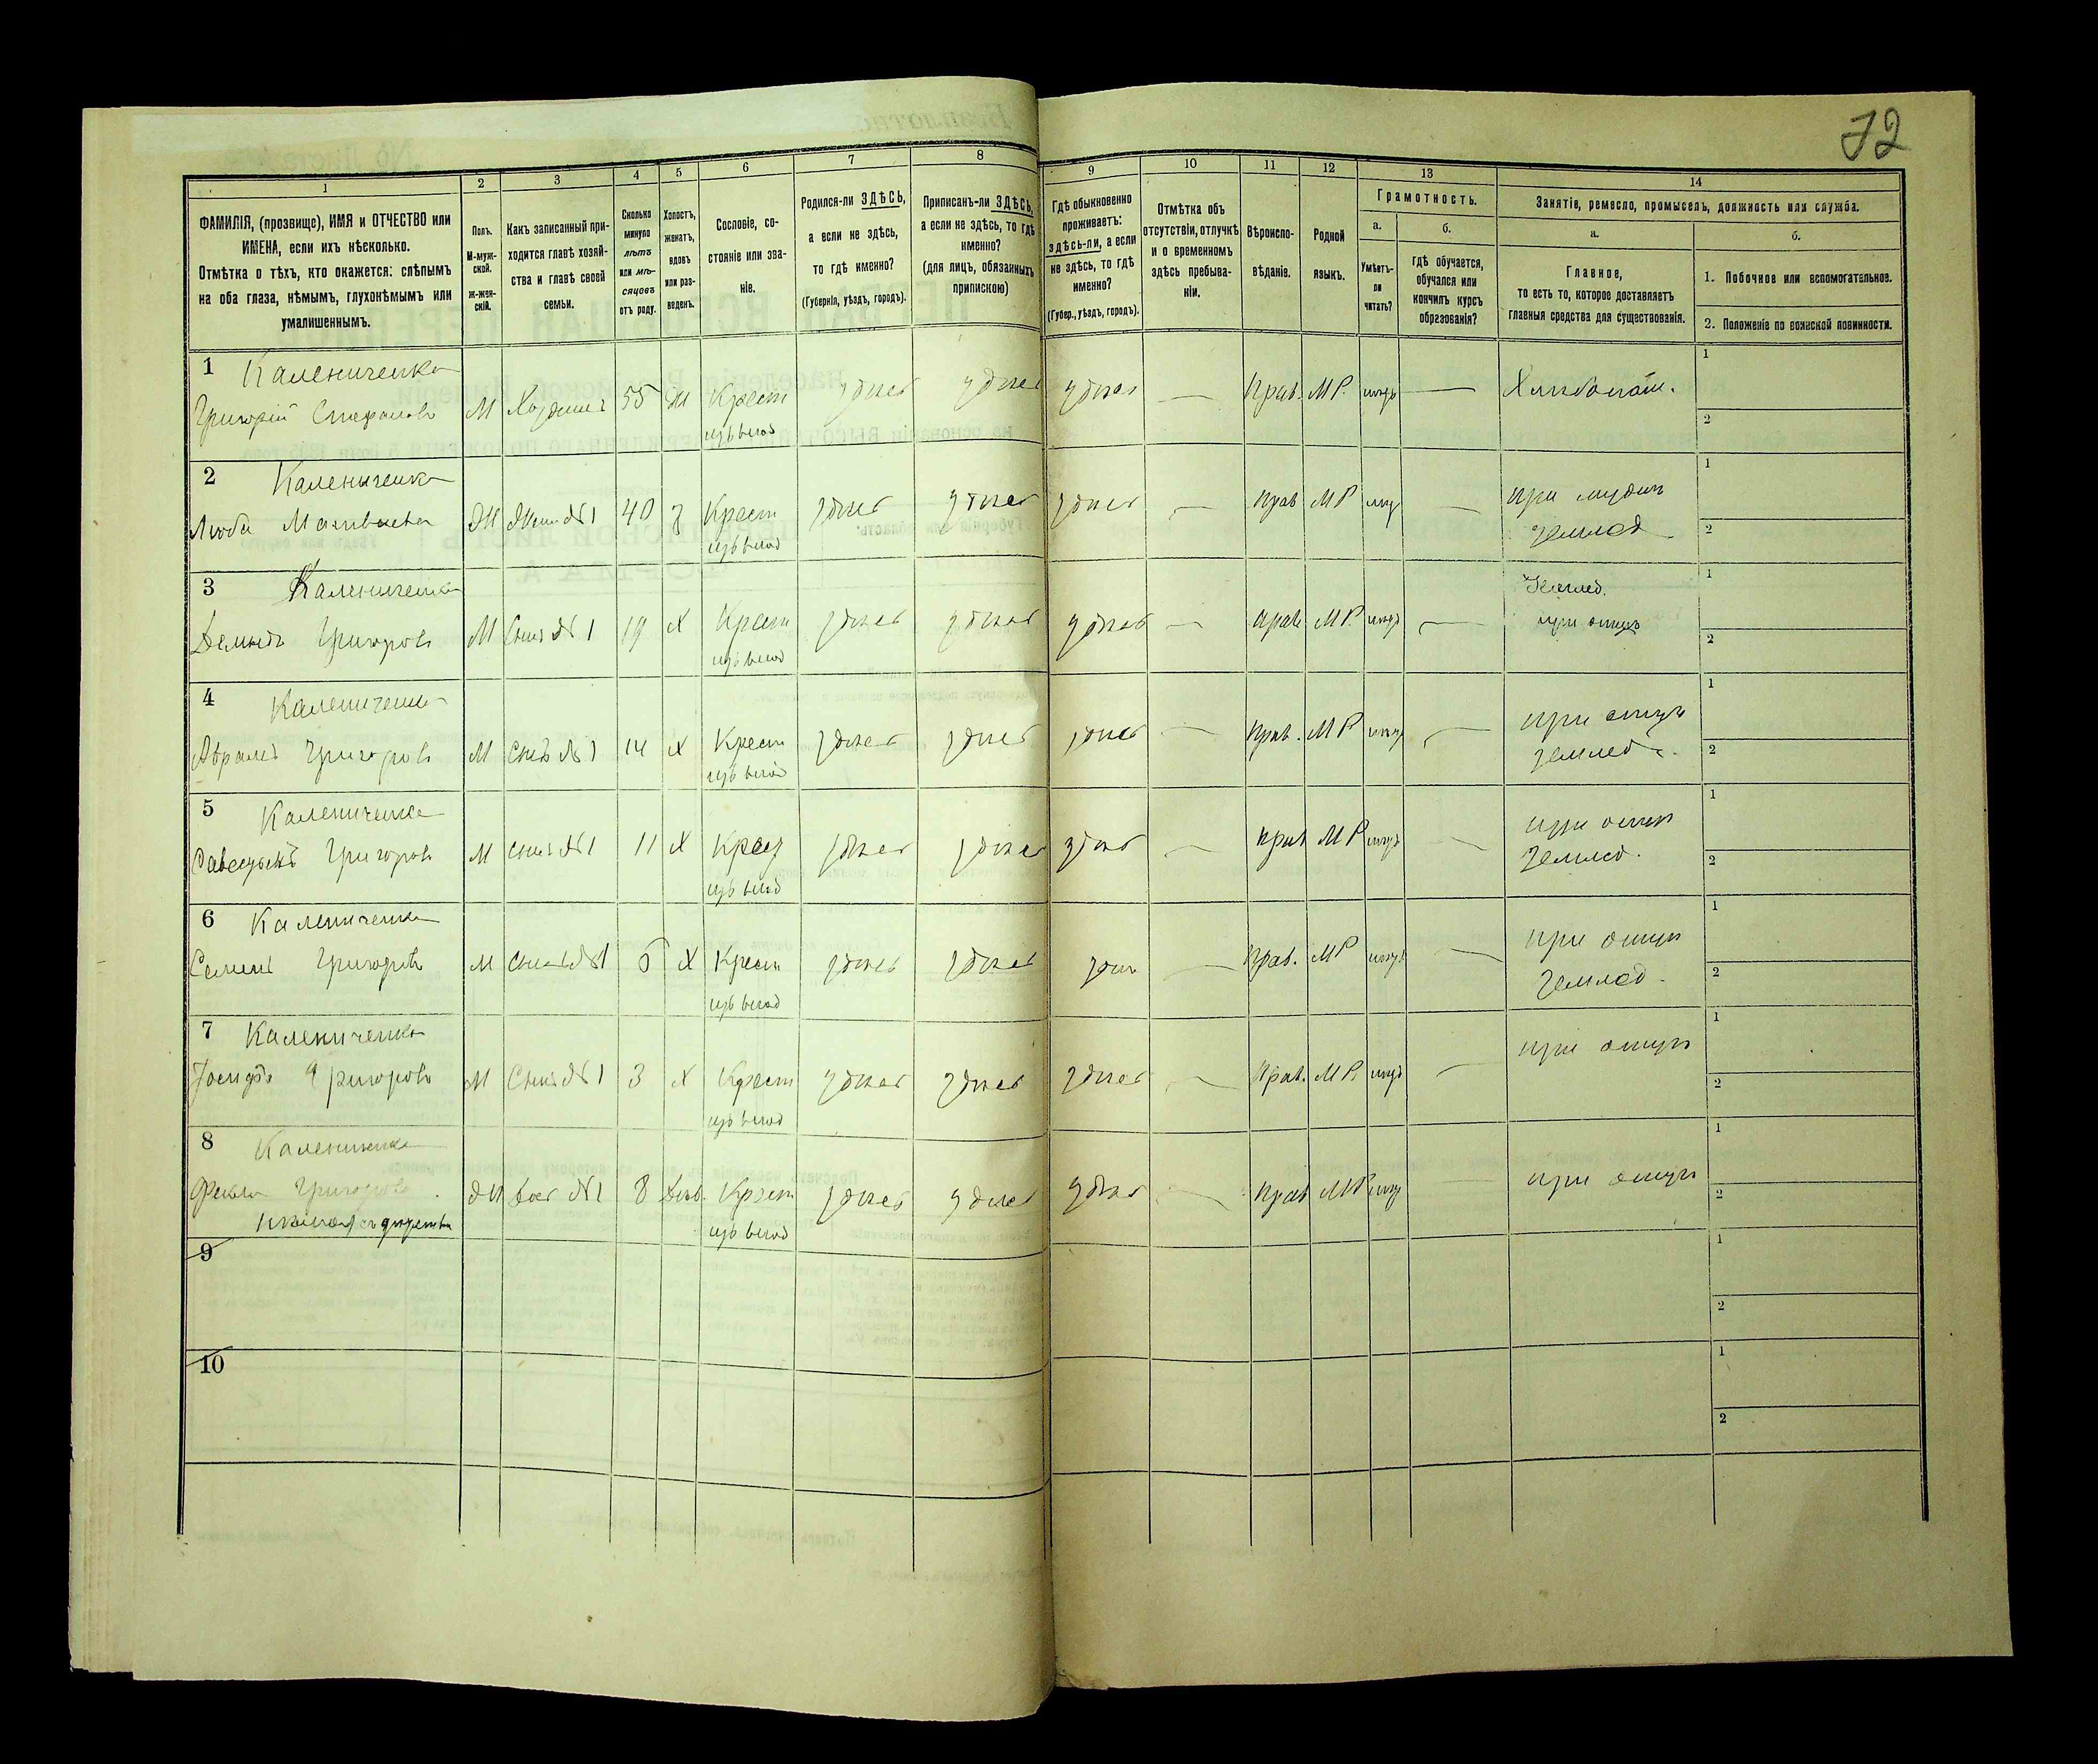 72
1
2
3
4
5
6
7
8
9
10
11
12
13
14
ФАМИЛІЯ, (прозвище), ИМЯ и ОТЧЕСТВО или
ИМЕНА, если ихъ нѣсколько.
Отмѣтка о тѣхъ, кто окажется: слѣпымъ
на оба глаза, нѣмымъ, глухонѣмымъ или
умалишеннымъ.
Полъ.
М-муж-
ской.
Ж-жен-
скій.
Какъ записанный при-
ходится главѣ хозяй-
ства и главѣ своей
семьи.
Сколько
минуло
лѣтъ
или мѣ-
сяцовъ
отъ роду.
Холостъ,
женатъ,
вдовъ
или раз-
веденъ.
Сословіе, со-
стояніе или зва-
ніе.
Родился-ли ЗДѢСЬ,
а если не здѣсь,
то гдѣ именно?
(Губернія, уѣздъ, городъ).
Приписанъ-ли ЗДѢСЬ,
а если не здѣсь, то гдѣ
именно?
(для лицъ, обязанныхъ
припискою)
Гдѣ обыкновенно
проживаетъ:
здѣсь-ли, а если
не здѣсь, то гдѣ
именно?
(Губер., уѣздъ, городъ).
Отмѣтка объ
отсутствіи, отлучкѣ
и о временномъ
здѣсь пребыва-
ніи.
Вѣроиспо-
вѣданіе.
Родной
языкъ.
Грамотность.
а.
Умѣетъ-
ли
читать?
б.
гдѣ обучается,
обучался или
кончилъ курсъ
образованія?
Занятіе, ремесло, промыселъ, должность или служба.
а.
Главное,
то есть то, которое доставляетъ
главныя средства для существованія.
б.
1. Побочное или вспомогательное.
2. Положеніе по воинской повинности.
1 Калениченко
Григорій Стефановъ М Хозяинъ 55 Ж Крест здѣсь здѣсь здѣсь — Прав. М Р. — Хлѣбопаш. 1 2
2 Калениченко
Люба Матвѣева Ж Жена №1 40 З Крест здѣсь здѣсь здѣсь — Прав М Р — при мужѣ 1 2
землед
3 Калениченко Землед. 1
Григоровъ М Сынъ №1 19 Х Крест здѣсь здѣсь здѣсь — Прав М Р — при отцѣ 2
4 Калениченко
Абрамъ Григоровъ М Сынъ №1 14 Х Крест здѣсь здѣсь здѣсь — Прав. М Р — при отцѣ 1 2
землед.
5 Калениченко
Григоровъ М Сынъ №1 11 Х Крест здѣсь здѣсь здѣсь — Прав М Р — при отцѣ 1 2
землед.
6 Калениченко
Семенъ Григоровъ М Сынъ №1 6 Х Крест здѣсь здѣсь — Прав. М Р — при отцѣ 1 2
землед.
7 Калениченко
Іосифъ Григоровъ М Сынъ №1 3 Х Крест здѣсь здѣсь здѣсь — Прав. М Р. — при отцѣ 1 2
8 Калениченко
Фекла Григорова Ж Доч №1 8 Дѣв. Крест здѣсь здѣсь здѣсь — Прав М Р — при отцѣ 1 2
9 1 2
10 1 2